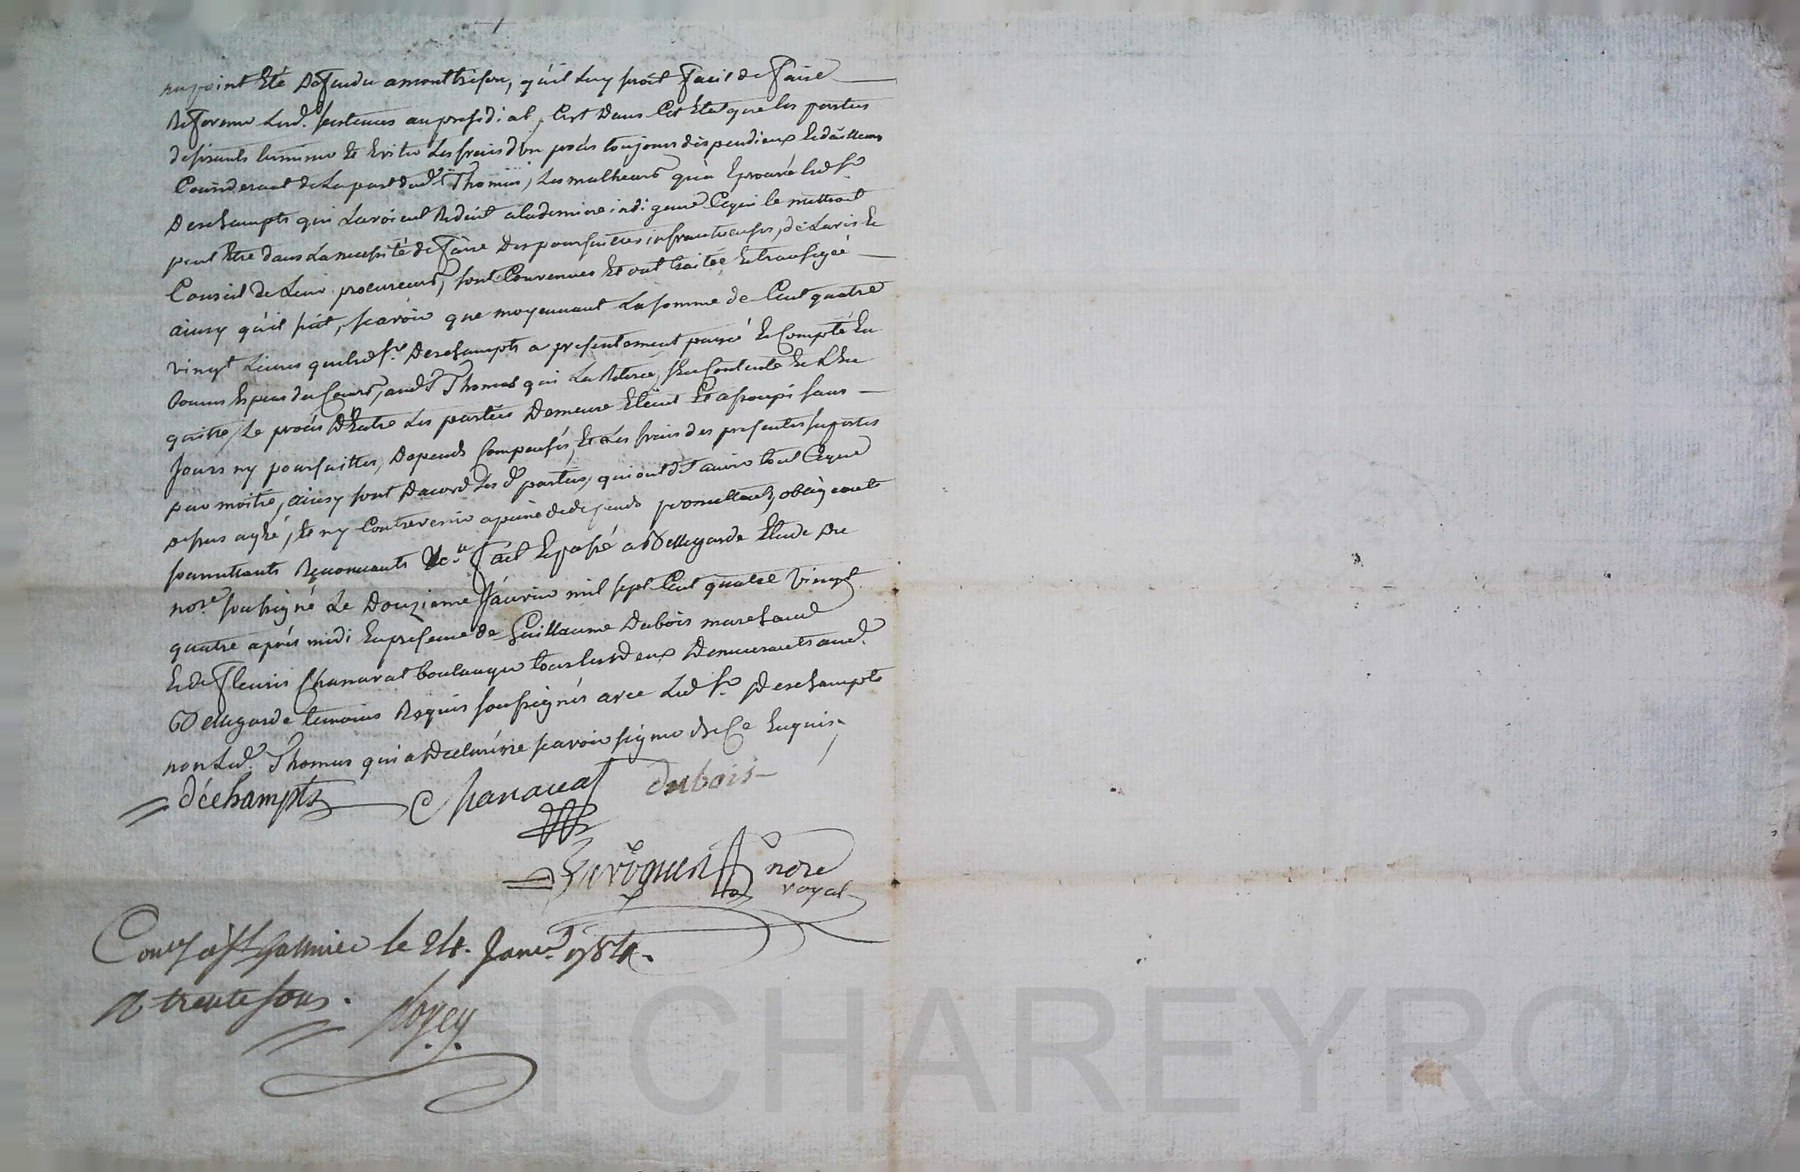 point Eté Defendu a montbrison, qu'il luy seroit Facil de Faire
Reformer Lesd. sentences au presidial, C'est Dans Cet Etat que les parties
desirants terminer Et Eviter Les frais d'un procès toujours dispendieux Et d'ailleurs
Considerant de La part dud. Sr Thomas, Les malheurs qu'a Eprouvé led. Sr.
Deschampts qui L'avoient Reduit a la derniere indigence Ce qui le mettroit
peut Etre dans La necessité de Faire Des poursuittes infructueuses, de L'avis Et
Conseil de Leur procureurs, sont Convenues Et ont traitté Et transigée
ainsy qu'il suit, scavoir que moyennant La somme de Cent quatre
vingt Livres que led. Sr. Deschampts a presentement payé Et Compté En
bonnes Especes du Cours, aud. Sr Thomas qui La Retiré, s'En Contente Et L'En
quitte, Le procès D'Entre Les parties Demeure Eteint Et assoupi sans
jours ny poursuittes, Depends Compensés, Et Les frais des presentes suportés
par moitié, ainsy sont D'acord Les d. parties, qui ont dit avoir tout Ce que
dessus agréé, Et ny Contrevenir a peine de depends promettants, obligeants
soumettants Renonceants &c. Fait Et passé a Bellegarde Etude Du
nore soussigné Le Douzieme Janvier mil sept Cent quatre vingt
quatre après midi En presence de Guillaume Dubois marchand
Et de Fleuris Chanavat boulanger tous les deux Demeurants aud.
Bellegarde temoins Requis soussignés avec Led. Sr. Deschampts
non Led. Thomas qui a Declaré ne scavoir signer De Ce Enquis.
déchampts Chanavat dubois
nore
royal
Conlé a St Galmier le 24. Janv. 1784.
R trente sous.
CHAREYRON